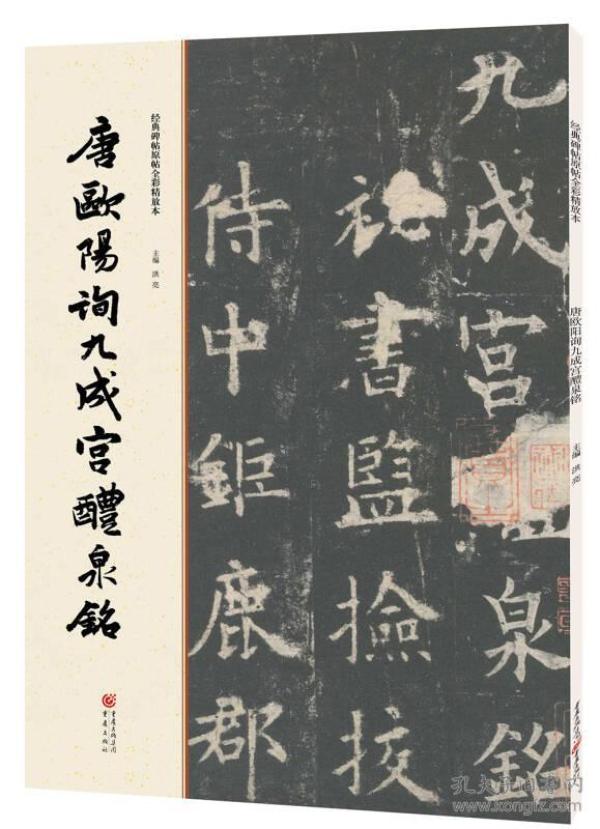 唐歐陽询九成宫醴泉銘
经典碑帖原帖全彩精放本
主编 洪亮
重庆出版集团
重庆出版社
九成宫醴泉銘
祕書監撿挍
侍中鉅鹿郡
经典碑帖原帖全彩精放本
唐欧阳询九成宫醴泉铭
主编 洪亮
孔夫子旧书网
www.kongfz.com